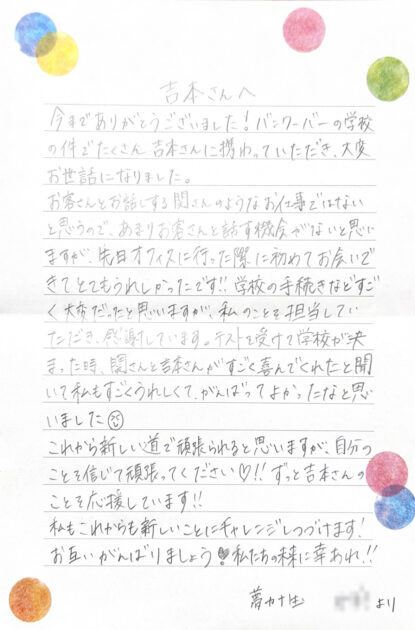 吉本さんへ
今までありがとうございました！バンクーバーの学校
の件でたくさん吉本さんに携わっていただき、大変
お世話になりました。
お客さんとお話しする関さんのようなお仕事ではない
と思うので、あまりお客さんと話す機会がないと思い
ますが、先日オフィスに行った際に初めてお会いで
きてとてもうれしかったです!! 学校の手続きなどすご
く大変だったと思いますが、私のことを担当してい
ただき、感謝しています。テストを受けて学校が決
まった時、関さんと吉本さんがすごく喜んでくれたと聞
いて私もすごくうれしくて、がんばってよかったなと思
いました
これから新しい道で頑張られると思いますが、自分の
ことを信じて頑張ってください♡!! ずっと吉本さんの
ことを応援しています!!
私もこれからも新しいことにチャレンジしつづけます!
お互いがんばりましょう♥私たちの未来に幸あれ!!
より